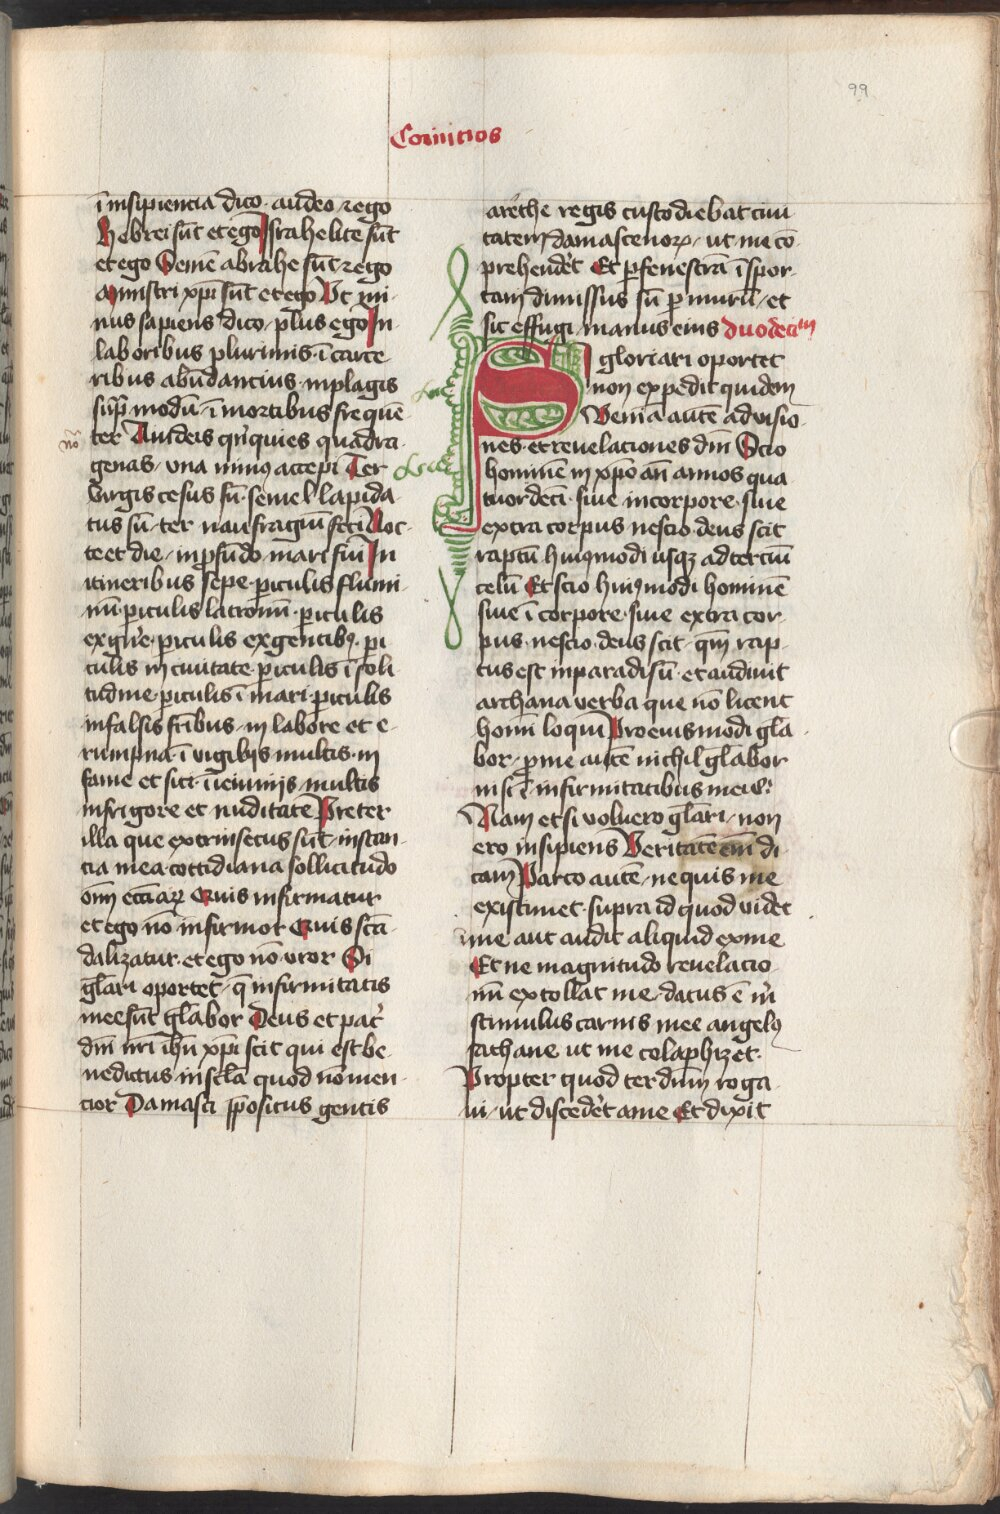 99
Corintios
ī insipiencia dico · audeo ⁊ ego
Hebrei sūt et ego Israhelite sūt
et ego Semē abrahe sūt ⁊ ego
Ministri xp̄i sūt et ego Vt mi
nus sapiens dico / plus ego In
laboribus plurimis · ī carce
ribus abūdancius · in plagis
sup̄ modū · ī mortibus frequē
ter Iudeis qn̄quies quadra
genas / una minꝰ accepi Ter
virgis cesus sū · semel lapida
tus sū · ter naufragiū feci Noc
te et die / in p̄fūdo mari sui In
itineribus sepe · piculis flumi
nū · piculis latronū · piculis
ex gn̄e · piculis ex gentibꝰ · pi
culis in ciuitate · piculis ī soli
tudine · piculis ī mari · piculis
in falsis fr̄ibus / in labore et e
rumpna · ī vigilijs multis · in
fame et siti · ī ieiunijs multis
in frigore et nuditate Preter
illa que extrinsecus sūt / instan
tia mea cottidiana sollicitudo
om̄ eccīaꝝ Quis infirmatur
et ego nō infirmor Quis scā
dalizatur · et ego nō vror Si
gl̄ari oportet / q̄ infirmitatis
mee sūt gl̄abor Deus et pat̄
dn̄i nr̄i ih̄u xp̄i scit qui est be
nedictus in scl̄a quod nō men
tior Damasci p̄positus gentis
no
arethe regis custodiebat ciui
tatem damascenoꝝ / ut me cō
prehendet Et p fenestrā ī spor
tam dimissus sū p murū / et
sic effugi manus eius duodecim
SI gloriari oportet
non expedit quidem
Veniā autē ad visio
nes · et reuelaciones dn̄i Scio
hominē in xp̄o an̄ annos qua
tuordeci · siue in corpore · siue
extra corpus nescio · deus scit
raptū huiꝰmodi usqꝫ ad terciū
celū Et scio huiꝰmodi hominē
siue ī corpore · siue extra cor
pus · nescio · deus scit · qm̄ rap
tus est in paradisū · et audiuit
archana verba que nō licent
homī loqui Pro eiusmodi gl̄a
bor / p me autē nichil gl̄abor
nisi ī infirmitatibus meis
Nam et si voluero gl̄ari / non
ero insipiens Veritatē em̄ di
cam Parco autē / ne quis me
existimet · supra id quod videt
in me aut audit aliquid ex me
Et ne magnitudo reuelacio
nū extollat me / datus ē m̄
stimulus carnis mee angelꝰ
sathane ut me colaphizet ·
Propter quod ter dn̄m roga
ui / ut discedet a me Et dixit